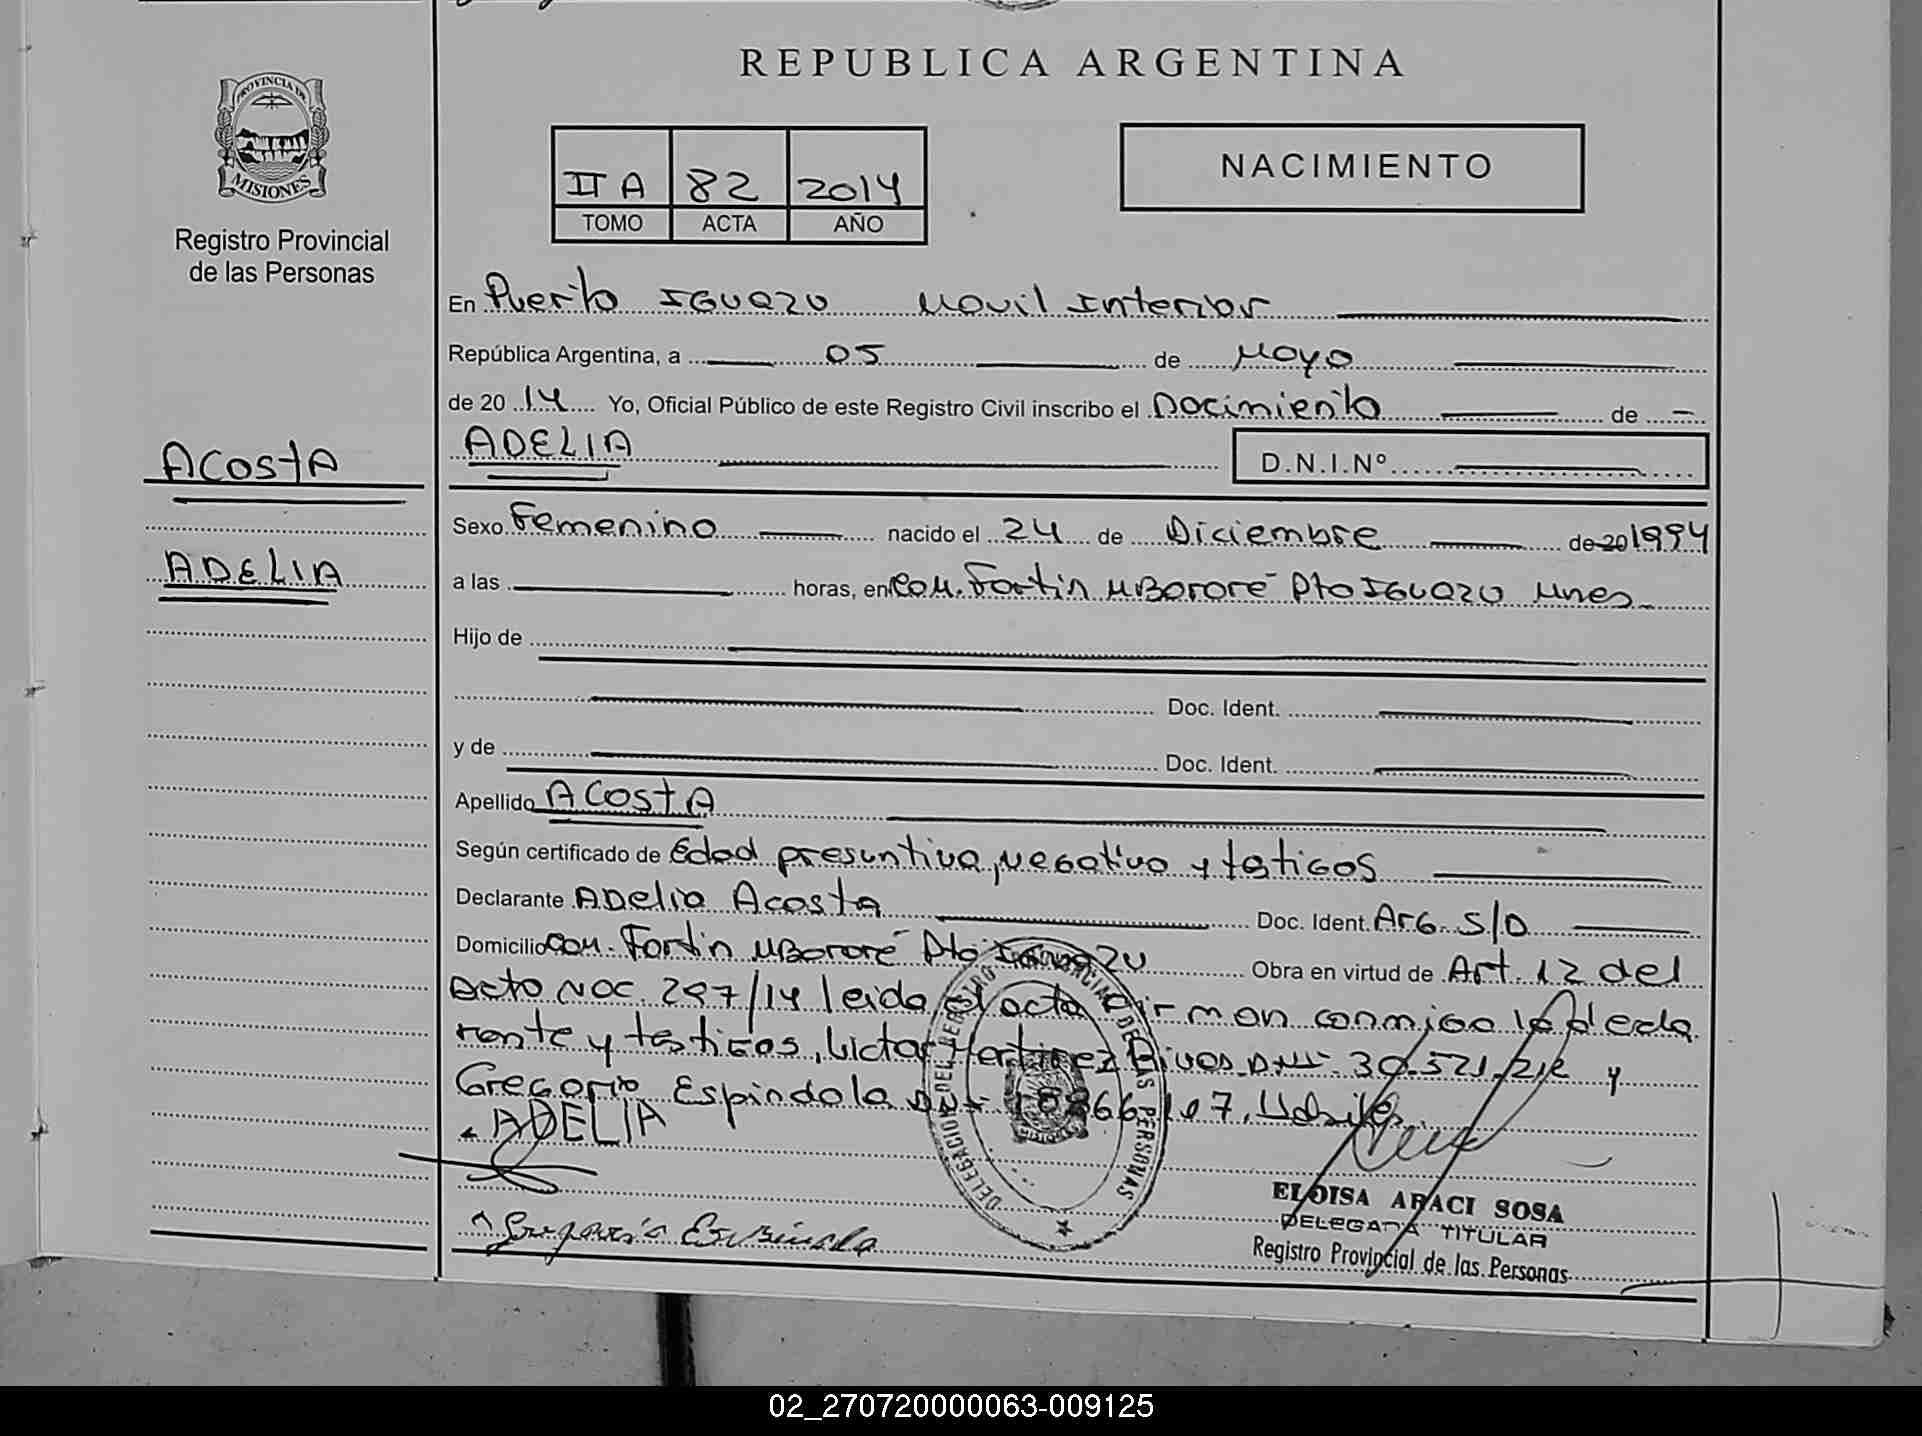 REPUBLICA ARGENTINA
PROVINCIA DE
MISIONES
Registro Provincial
de las Personas
II A 82 2014
TOMO ACTA AÑO
NACIMIENTO
En Puerto Iguazu Movil Interior
República Argentina, a 05 de Mayo
de 20 14 Yo, Oficial Público de este Registro Civil inscribo el Nacimiento de
Acosta
ADELIA
D.N.I.Nº
Sexo Femenino nacido el 24 de Diciembre de 20 1994
ADELIA
a las horas, en Com. Fortin MBororé Pto Iguazu Mnes
Hijo de
Doc. Ident.
y de Doc. Ident.
Apellido Acosta
Según certificado de Edad presuntiva, negativo y testigos
Declarante Adelia Acosta Doc. Ident. Arg. S/D
Domicilio Com. Fortin MBororé Pto Iguazu Obra en virtud de Art. 12 del
Dcto Nac. 297/14 leida el acta firman conmigo la decla
rante y testigos, Victor Martinez DNI 30.521.212 y
Gregorio Espindola DNI
ADELIA
Gregorio Espindola
DELEGACION DEL REGISTRO PROVINCIAL DE LAS PERSONAS
ELOISA ARACI SOSA
DELEGADA TITULAR
Registro Provincial de las Personas
02_270720000063-009125